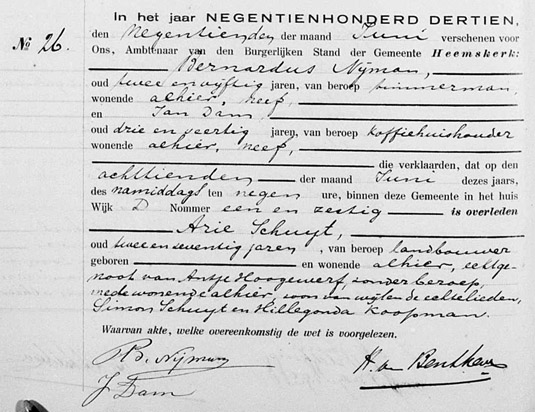 In het jaar NEGENTIENHONDERD DERTIEN,
№ 26.
den Negentienden der maand Juni verschenen voor
Ons, Ambtenaar van den Burgerlijken Stand der Gemeente Heemskerk:
Bernardus Nijman,
oud twee en vijftig jaren, van beroep timmerman,
wonende alhier, neef,
en Jan Dam,
oud drie en veertig jaren, van beroep koffiehuishouder
wonende alhier, neef,
die verklaarden, dat op den
achttienden der maand Juni dezes jaars,
des namiddags ten negen ure, binnen deze Gemeente in het huis
Wijk D Nommer een en zestig is overleden
Arie Schuyt,
oud twee en seventig jaren, van beroep landbouwer
geboren en wonende alhier, echtge-
noot van Antje Hoogewerf, zonder beroep,
mede wonende alhier, zoon van wijlen de echtelieden,
Simon Schuyt en Hillegonda Koopman.
Waarvan akte, welke overeenkomstig de wet is voorgelezen.
B. Nijman
H. van
J Dam